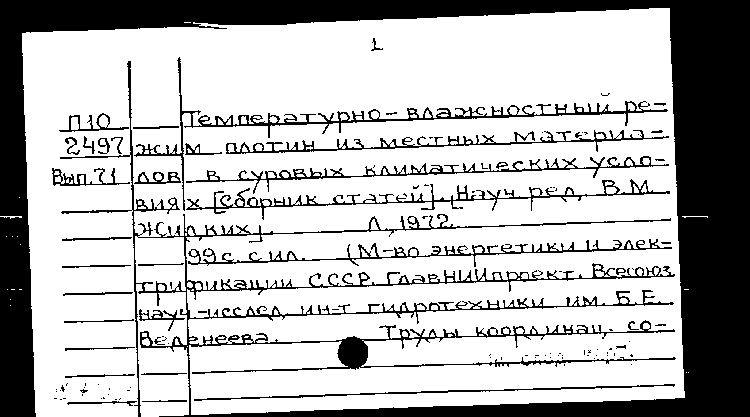 1
П10 Температурно-влажностный ре=
2497 жим плотин из местных материа=
Вып.71 лов в суровых климатических усло-
виях [Сборник статей]. [Науч. ред. В.М.
Жиленких]. Л., 1972.
99 с. с ил. (М-во энергетики и элек=
трификации СССР. Главниипроект. Всесоюз.
науч.-исслед. ин-т гидротехники им. Б.Е.
Веденеева. Труды координац. со-